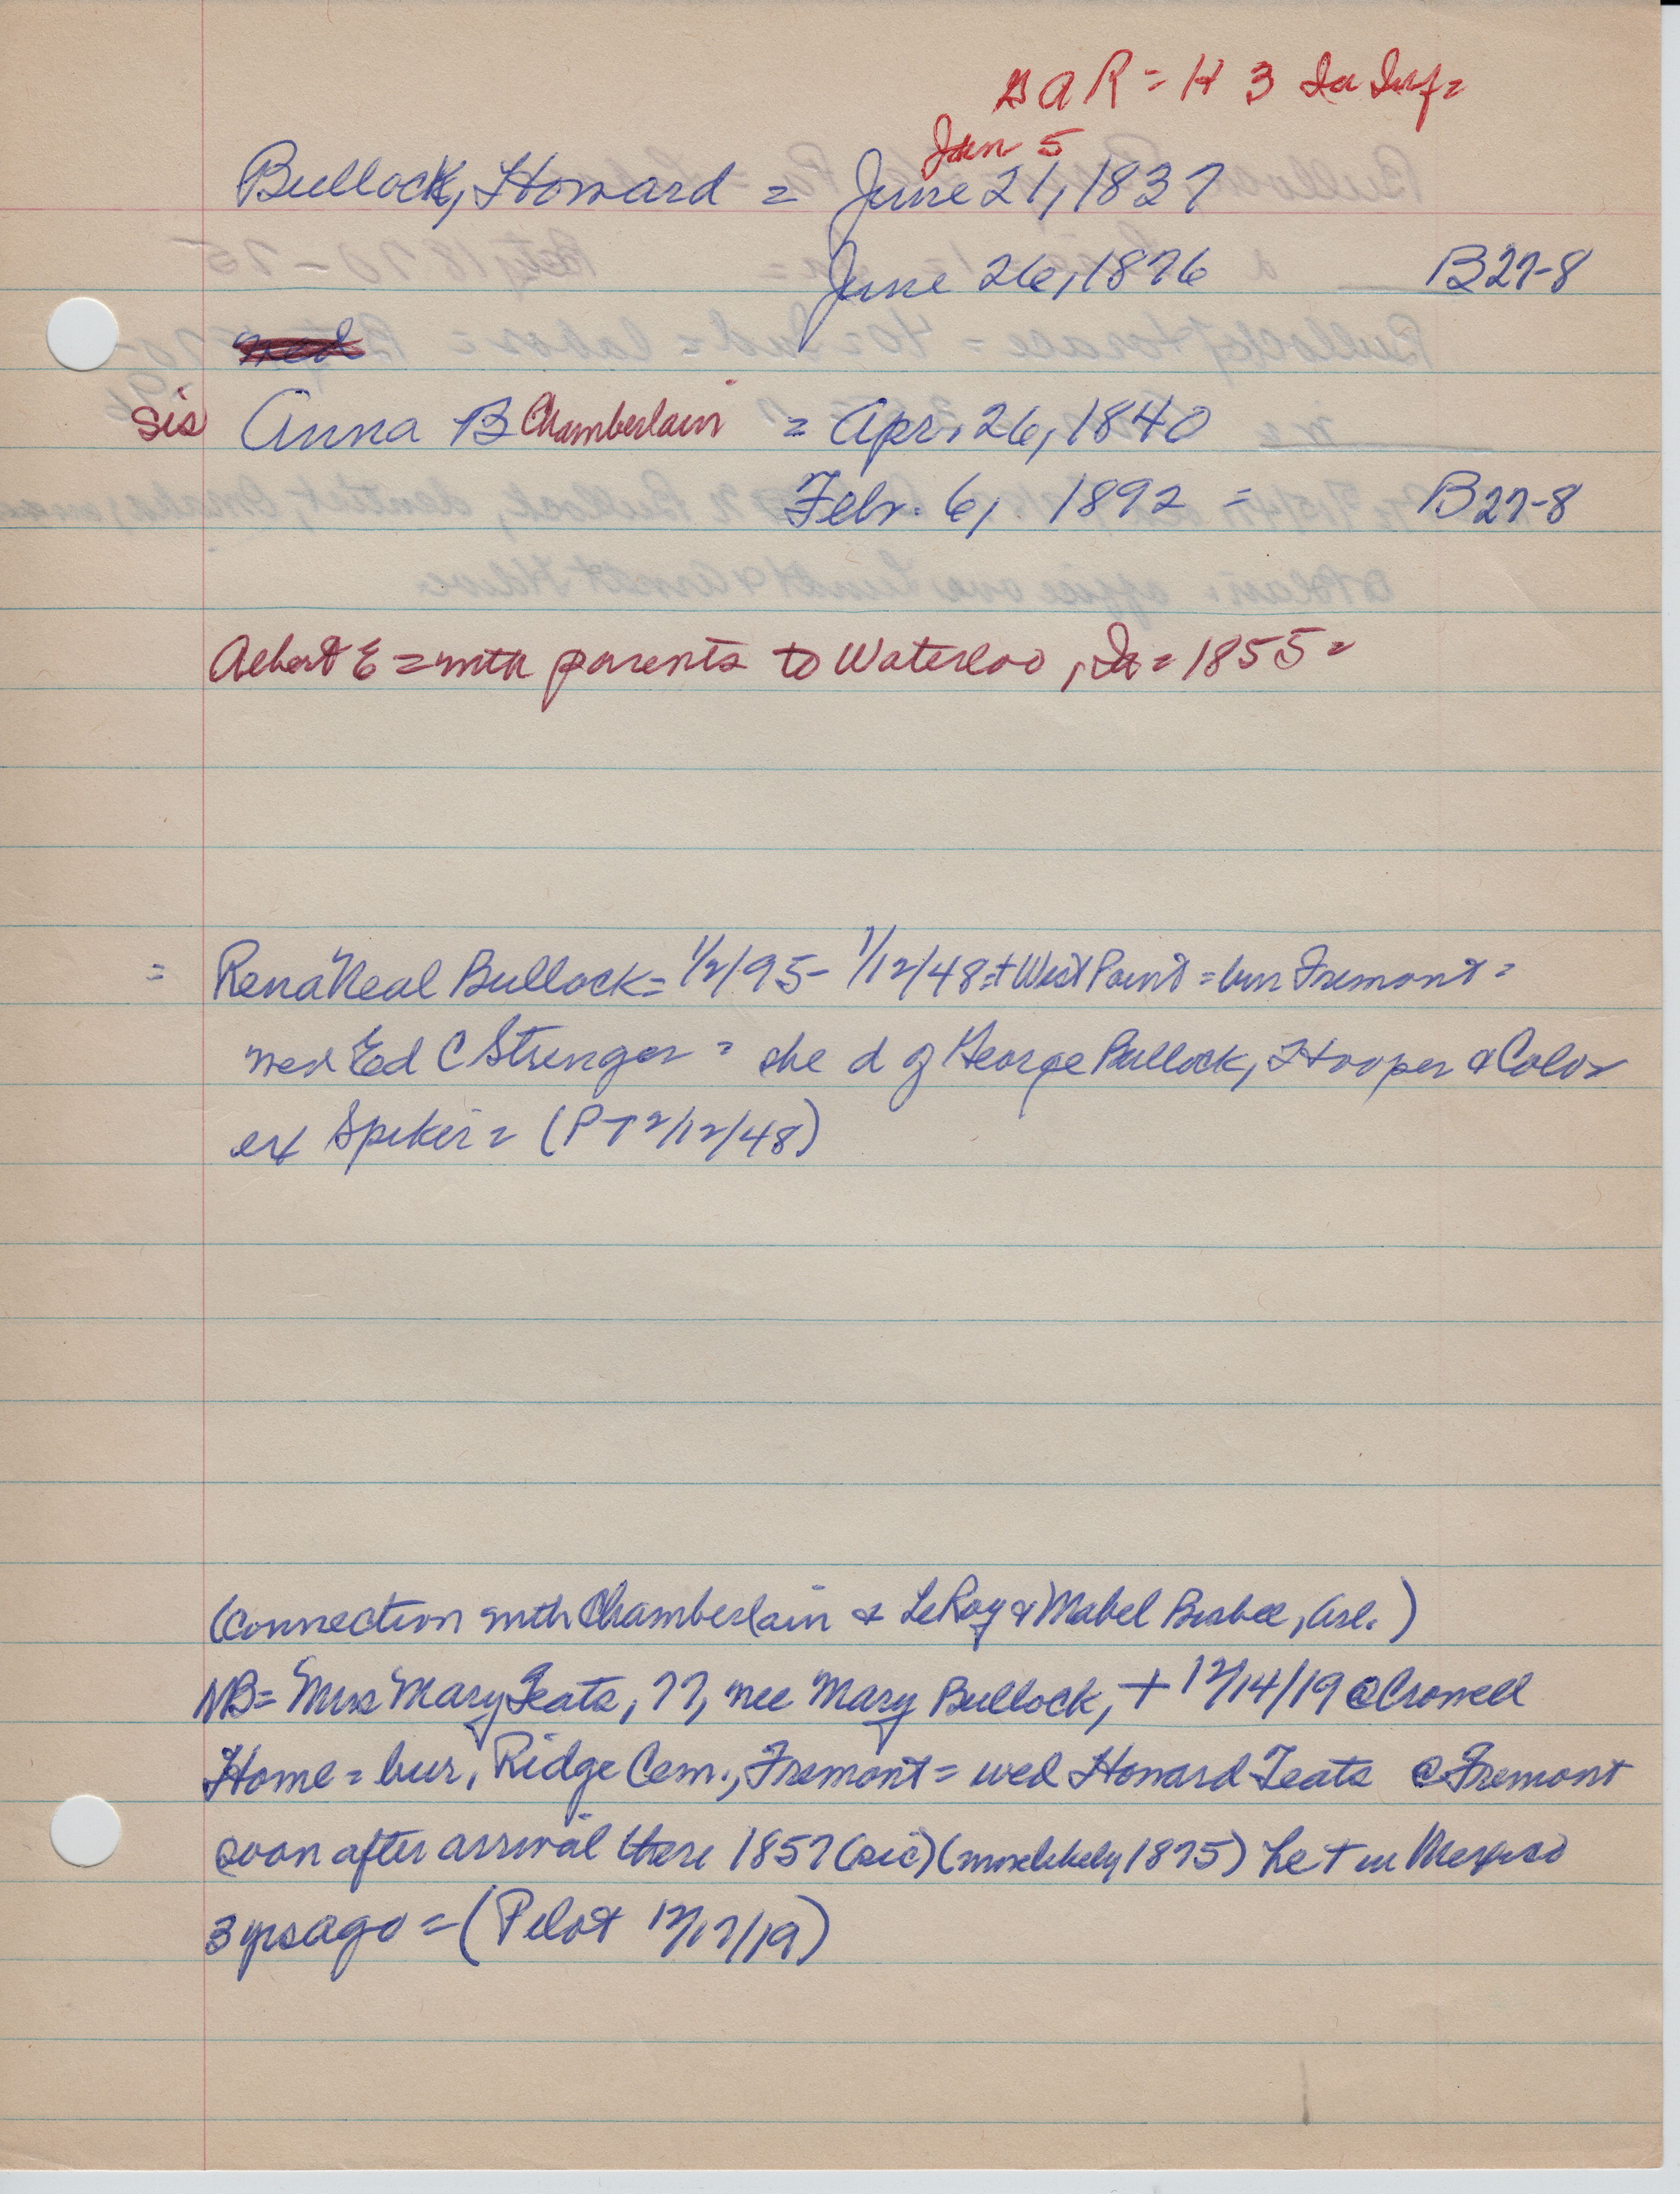 G A R = H 3 Ia Inf =
Jan 5
Bullock, Howard = June 21, 1837
June 26, 1876 B27-8
wed
Sis Anna B Chamberlain = Apr. 26, 1840
Febr. 6, 1892 = B27-8
Albert E = with parents to Waterloo, Ia = 1855 =
= Rena Neal Bullock = 1/2/95 - 1/12/48 = + West Point = bur Fremont =
wed Ed C Stringer = she d of George Bullock, Hooper &
(PT 2/12/48)
(connection with Chamberlain & LeRoy & Mabel Bisbee, Arl.)
NB = Mrs Mary Teats, 77, nee Mary Bullock, + 12/14/19 @ Crowell
Home = bur, Ridge Cem., Fremont = wed Howard Teats @ Fremont
soon after arrival there 1857 (sic) (more likely 1875) he + in Mexico
3 yrs ago = (Pilot 12/17/19)